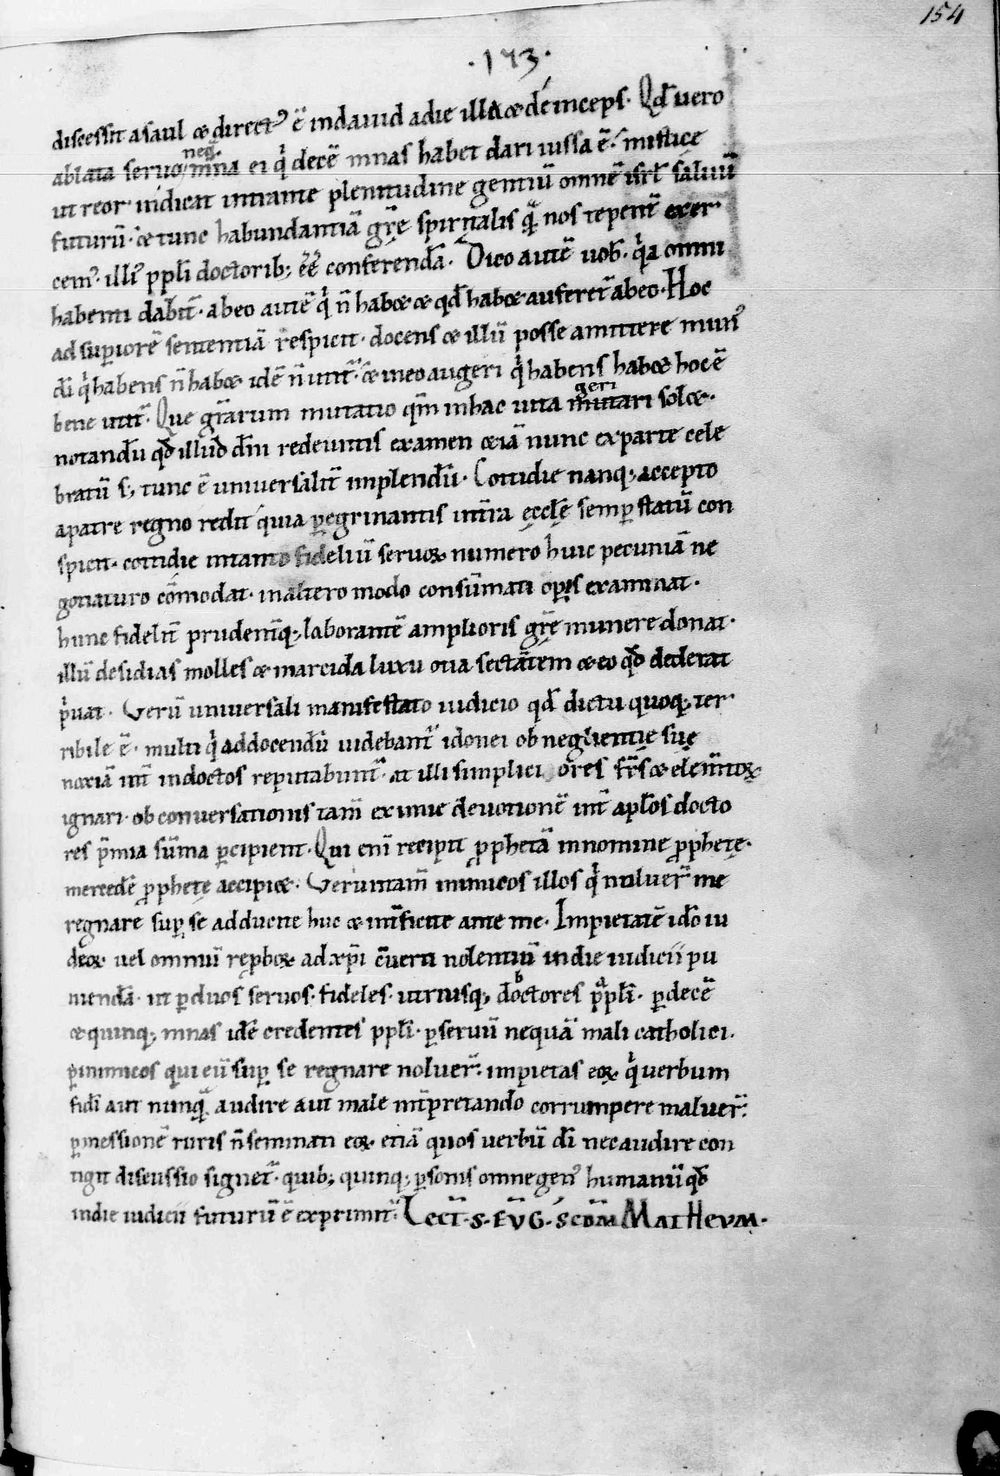 154
·173·
discessit a saul ⁊ direct᷒ ē in dauid a die illa ⁊ deinceps· Qđ uero
ablata seruo neq̄ mna ei q̇ decē mnas habet dari iussa ē· mistice
ut reor indicat intrante plenitudine gentiū omnē isrł saluū
futurū· ⁊ tunc habundantiā gr̄e spiritalis quā nos tepent̄ exer
cem᷒· illi᷒ ppłi doctorib; ēē conferendā· Dico autē uob̄· quia omni
habenti dabit̄· ab eo autē q̇ n̄ habet ⁊ qđ habet auferet̄ ab eo· Hoc
ad superiorē sententiā respicit· docens ⁊ illū posse amittere mun᷒
di q̇ habens n̄ habet· idē n̄ utit̄· ⁊ in eo augeri q̇ habens habet hoc ē
bene utit̄· Que gr̄arum mutatio qm̄ in hac uita geri mutari solet·
notandū qđ illud dn̄i redeuntis examen ⁊iā nunc ex parte cele
bratū s; tunc ē uniuersalit̄ implendū· Cottidie nanq; accepto
a patre regno redit quia ꝑegrinantis int̄ra ęcclę semꝑ statū con
spicit· cottidie in tanto fideliū seruoꝝ numero huic pecuniā ne
gotiaturo cōmodat· in altero modo consūmati oꝑis examinat·
hunc fidelit̄ prudent̄q; laborantē amplioris gr̄e munere donat·
illū desidias molles ⁊ marcida luxu otia sectātem ⁊ eo qđ dederat
p̄uat· Verū uniuersali manifestato iudicio qđ dictu quoq; ter
ribile ē· multi q̇ ad docendū uidebant̄ idonei ob neglientię suę
noxiā int̄ indoctos reputabunt̄· at illi simpliciores fr̄s ⁊ elem̄toꝝ
ignari· ob conuersationis tam̄ eximie deuotionē int̄ apłos docto
res p̄mia sūma ꝑcipient· Qui eni recipit ꝓphetā in nomine ꝓphetę·
mercedē ꝓphetę accipiet· Veruntam̄ inimicos illos q̇ noluer̄ me
regnare suꝑ se adducite huc ⁊ int̄ficite ante me· Impietatē ido iu
deoꝝ uel omniū reꝓboꝝ ad xp̄i c̄uerti nolentiū in die iudicii pu
niendā· ut ꝑ duos seruos· fideles· utriusq; doctores ppłi· ꝑ decē
⁊ quinq; mnas idē credentes ppłi· ꝑ seruū nequā mali catholici·
ꝑ inimicos qui eū suꝑ se regnare noluer̄· impietas eoꝝ q̇ uerbum
fidi aut nunquā audire aut male int̄pretando corrumpere maluer̄·
ꝑ messionē ruris n̄ seminati eoꝝ etiā quos uerbū di nec audire con
tigit discussio signet̄· quib; quinq; ꝑsonis omne gen᷒ humanū qđ
in die iudicii futurū ē exprimit̄· Lect̄·s·Ev̄G·scđm MatHeum·